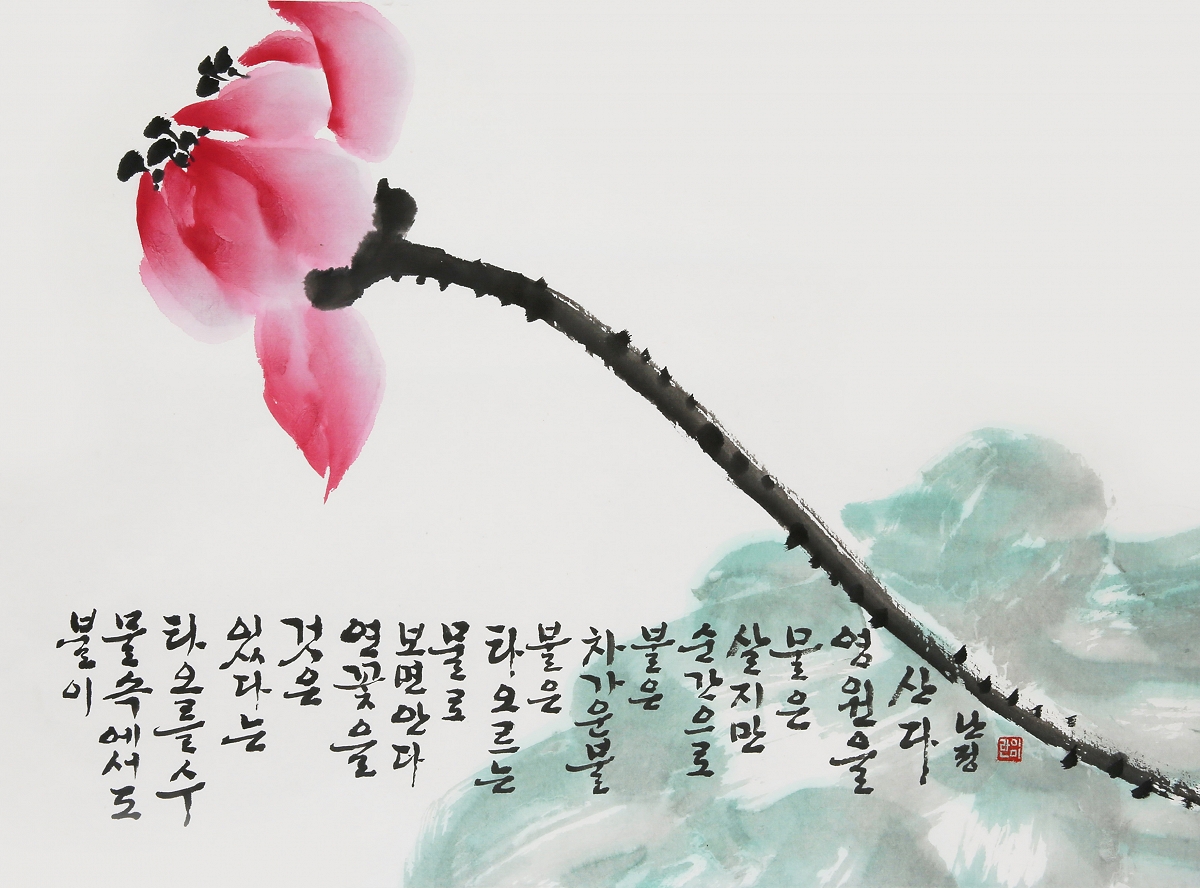 불이
물속에서도
타오를수
있다는
것은
연꽃을
보면안다
물로
타오르는
불은
차가운불
불은
순간으로
살지만
물은
영원을
산다
난정
이미란